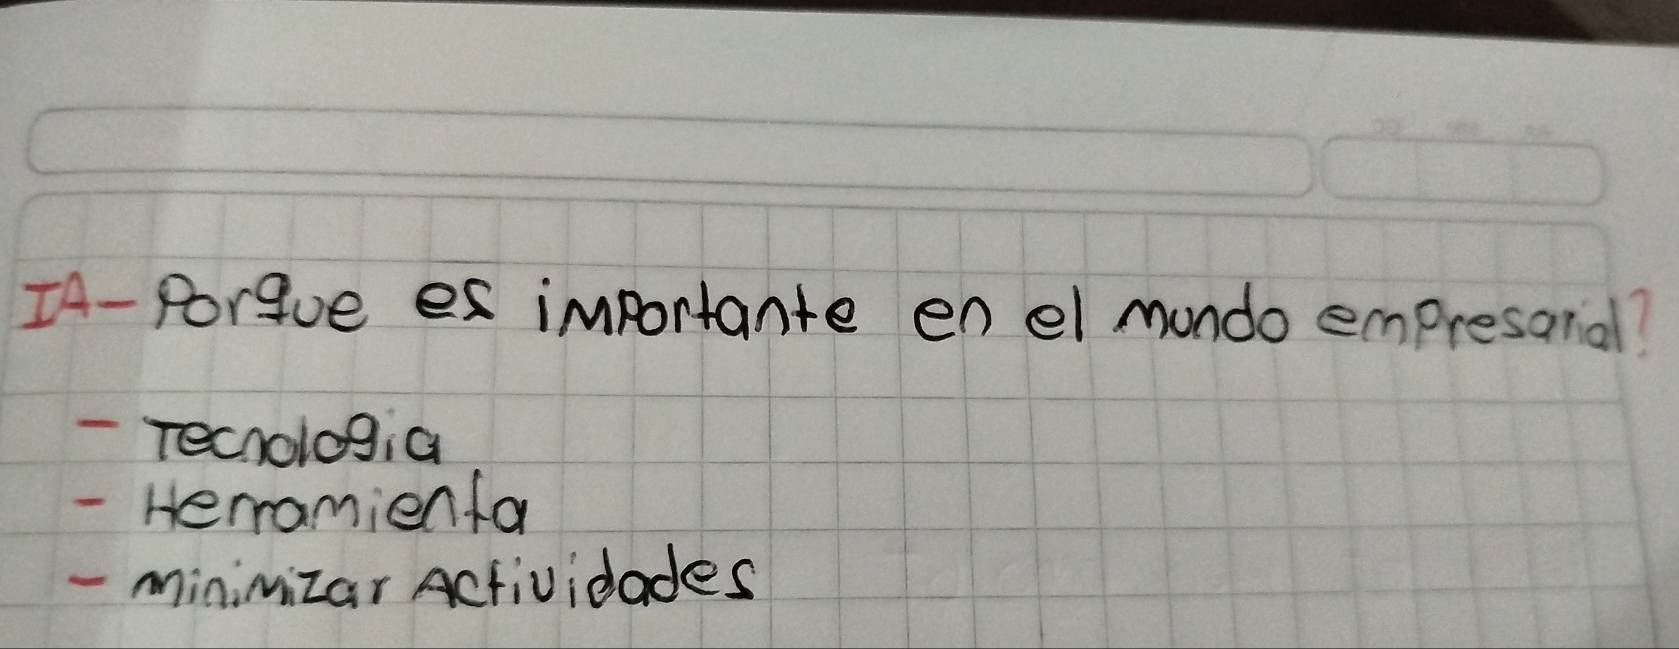 IA- Porque es importante en el mundo empresarial?
- Tecnologia
- Herramienta
- minimizar Actividades